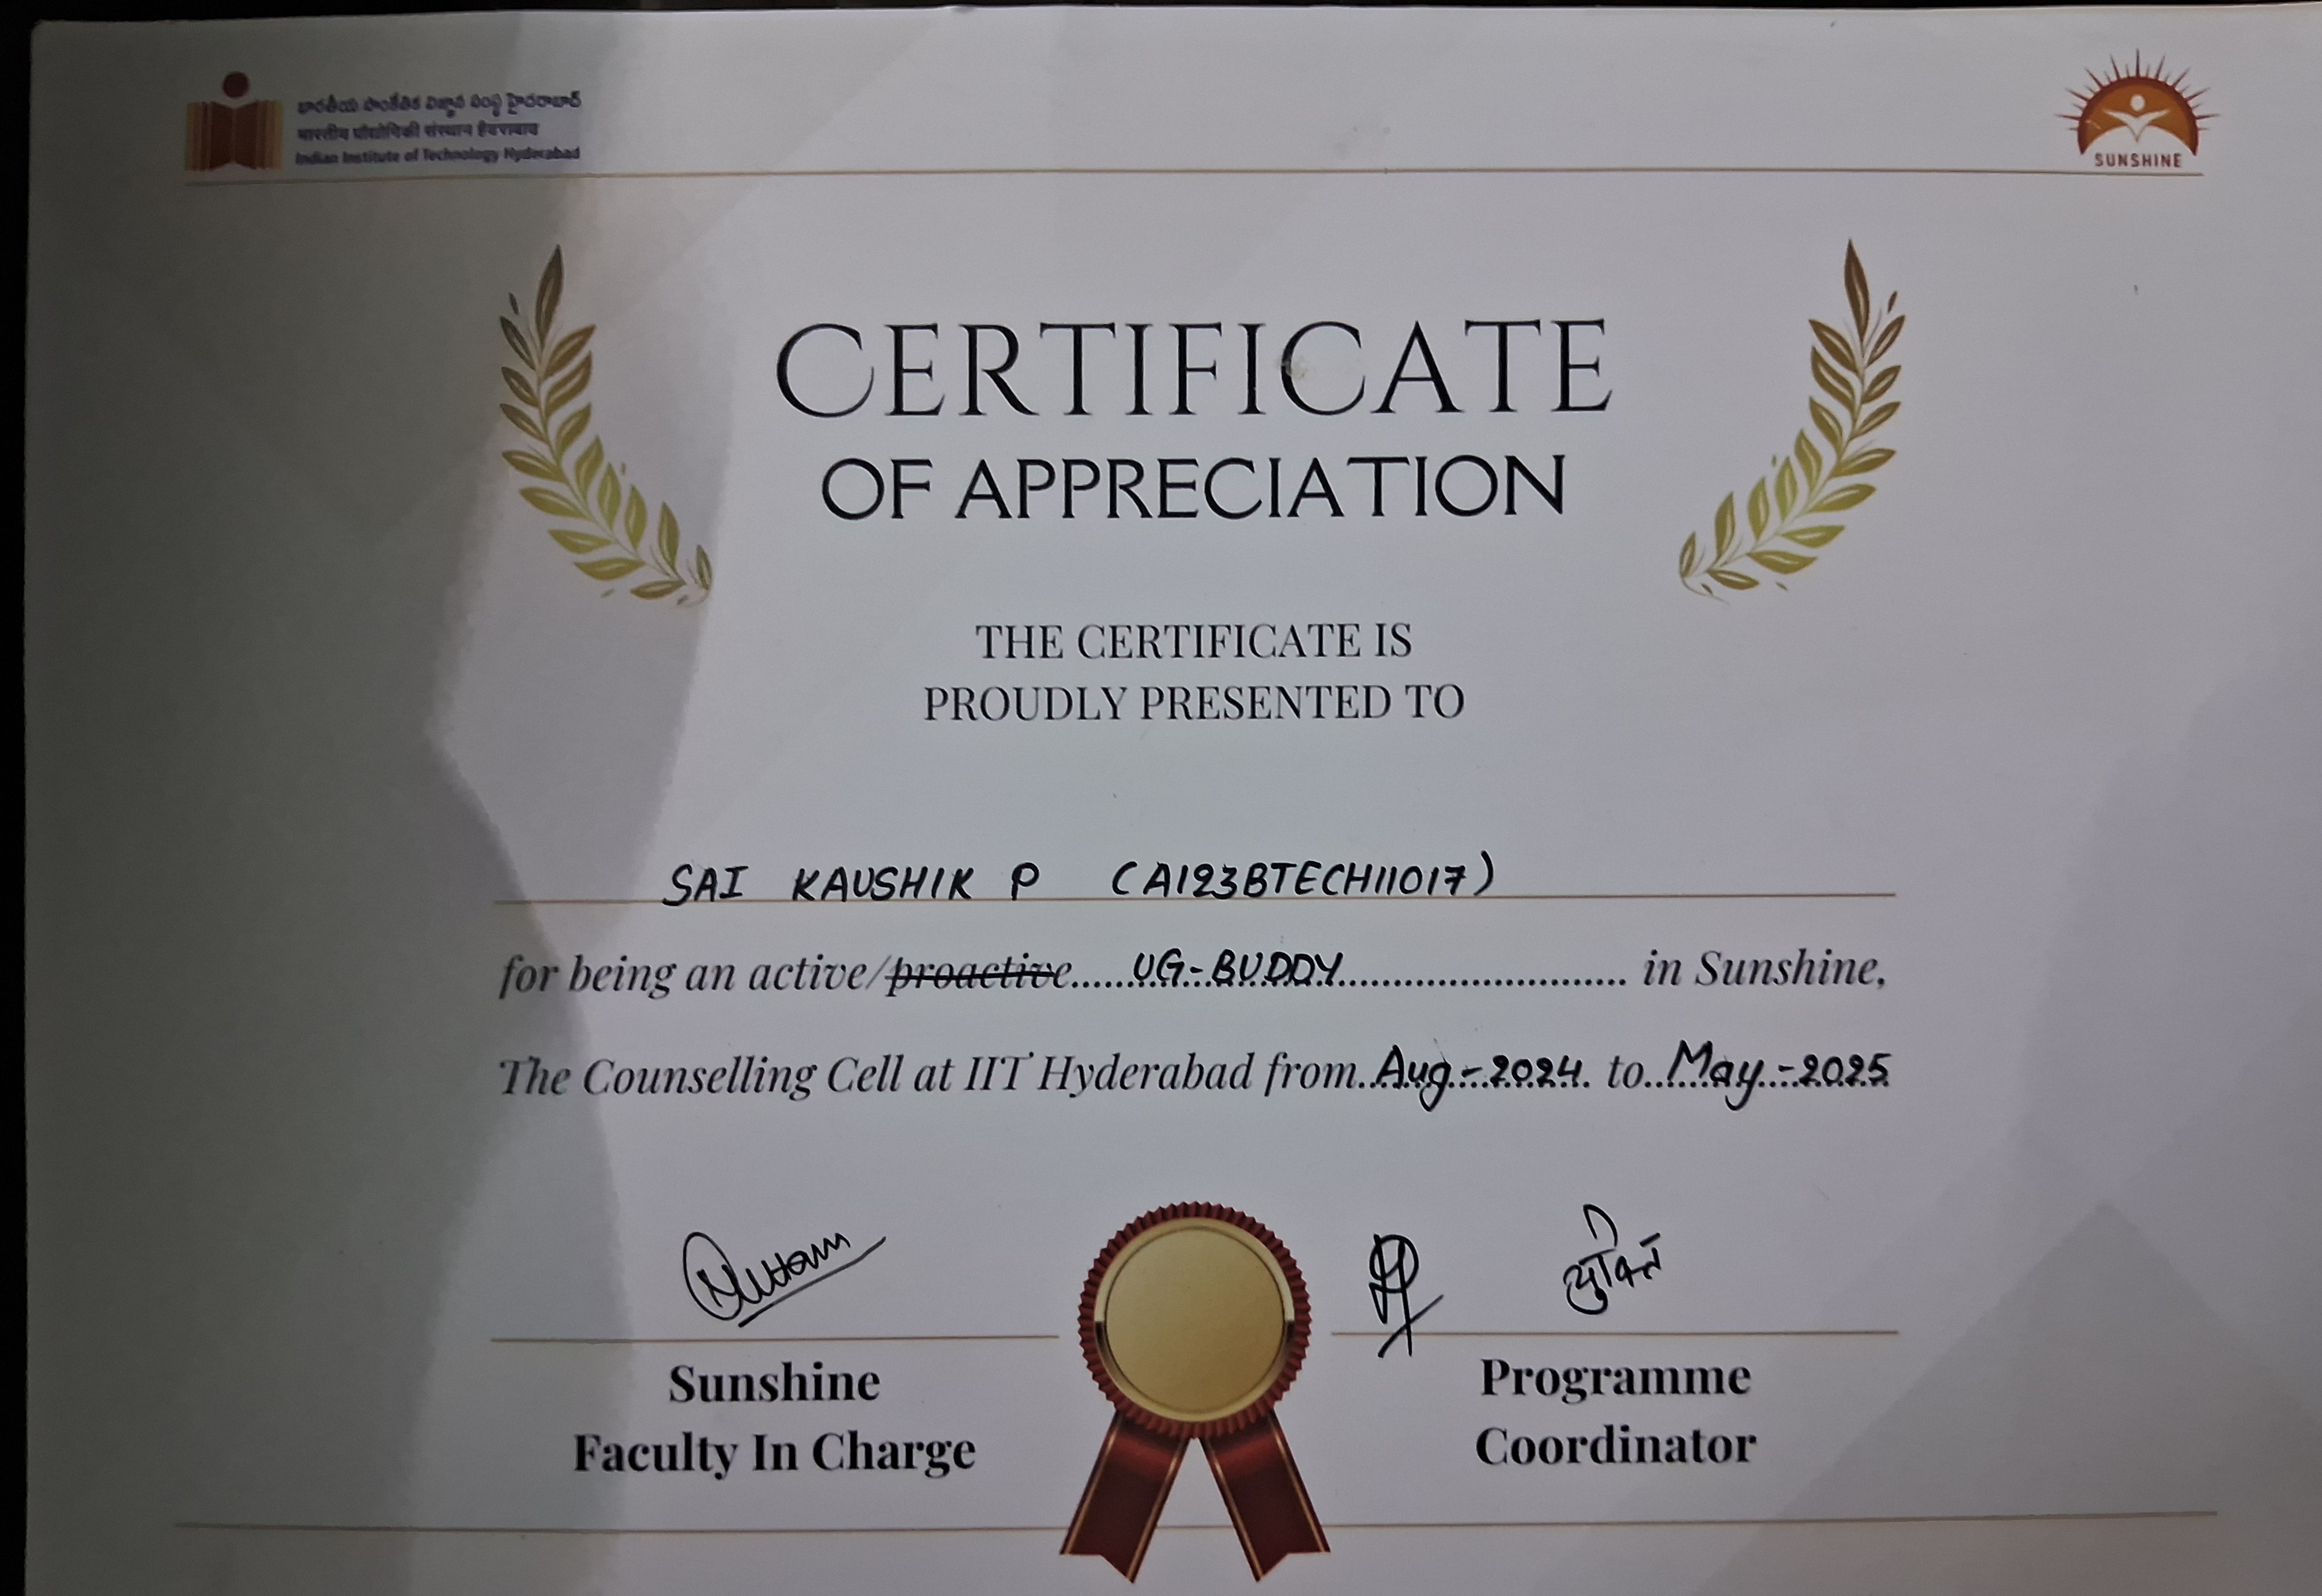 భారతీయ సాంకేతిక విజ్ఞాన సంస్థ హైదరాబాద్
भारतीय प्रौद्योगिकी संस्थान हैदराबाद
Indian Institute of Technology Hyderabad
SUNSHINE
CERTIFICATE
OF APPRECIATION
THE CERTIFICATE IS
PROUDLY PRESENTED TO
SAI KAUSHIK P (AI23BTECH11017)
for being an active/proactive.....UG-BUDDY.............................. in Sunshine,
The Counselling Cell at IIT Hyderabad from..Aug-2024. to..May-2025
युक्ति
Sunshine
Faculty In Charge
Programme
Coordinator